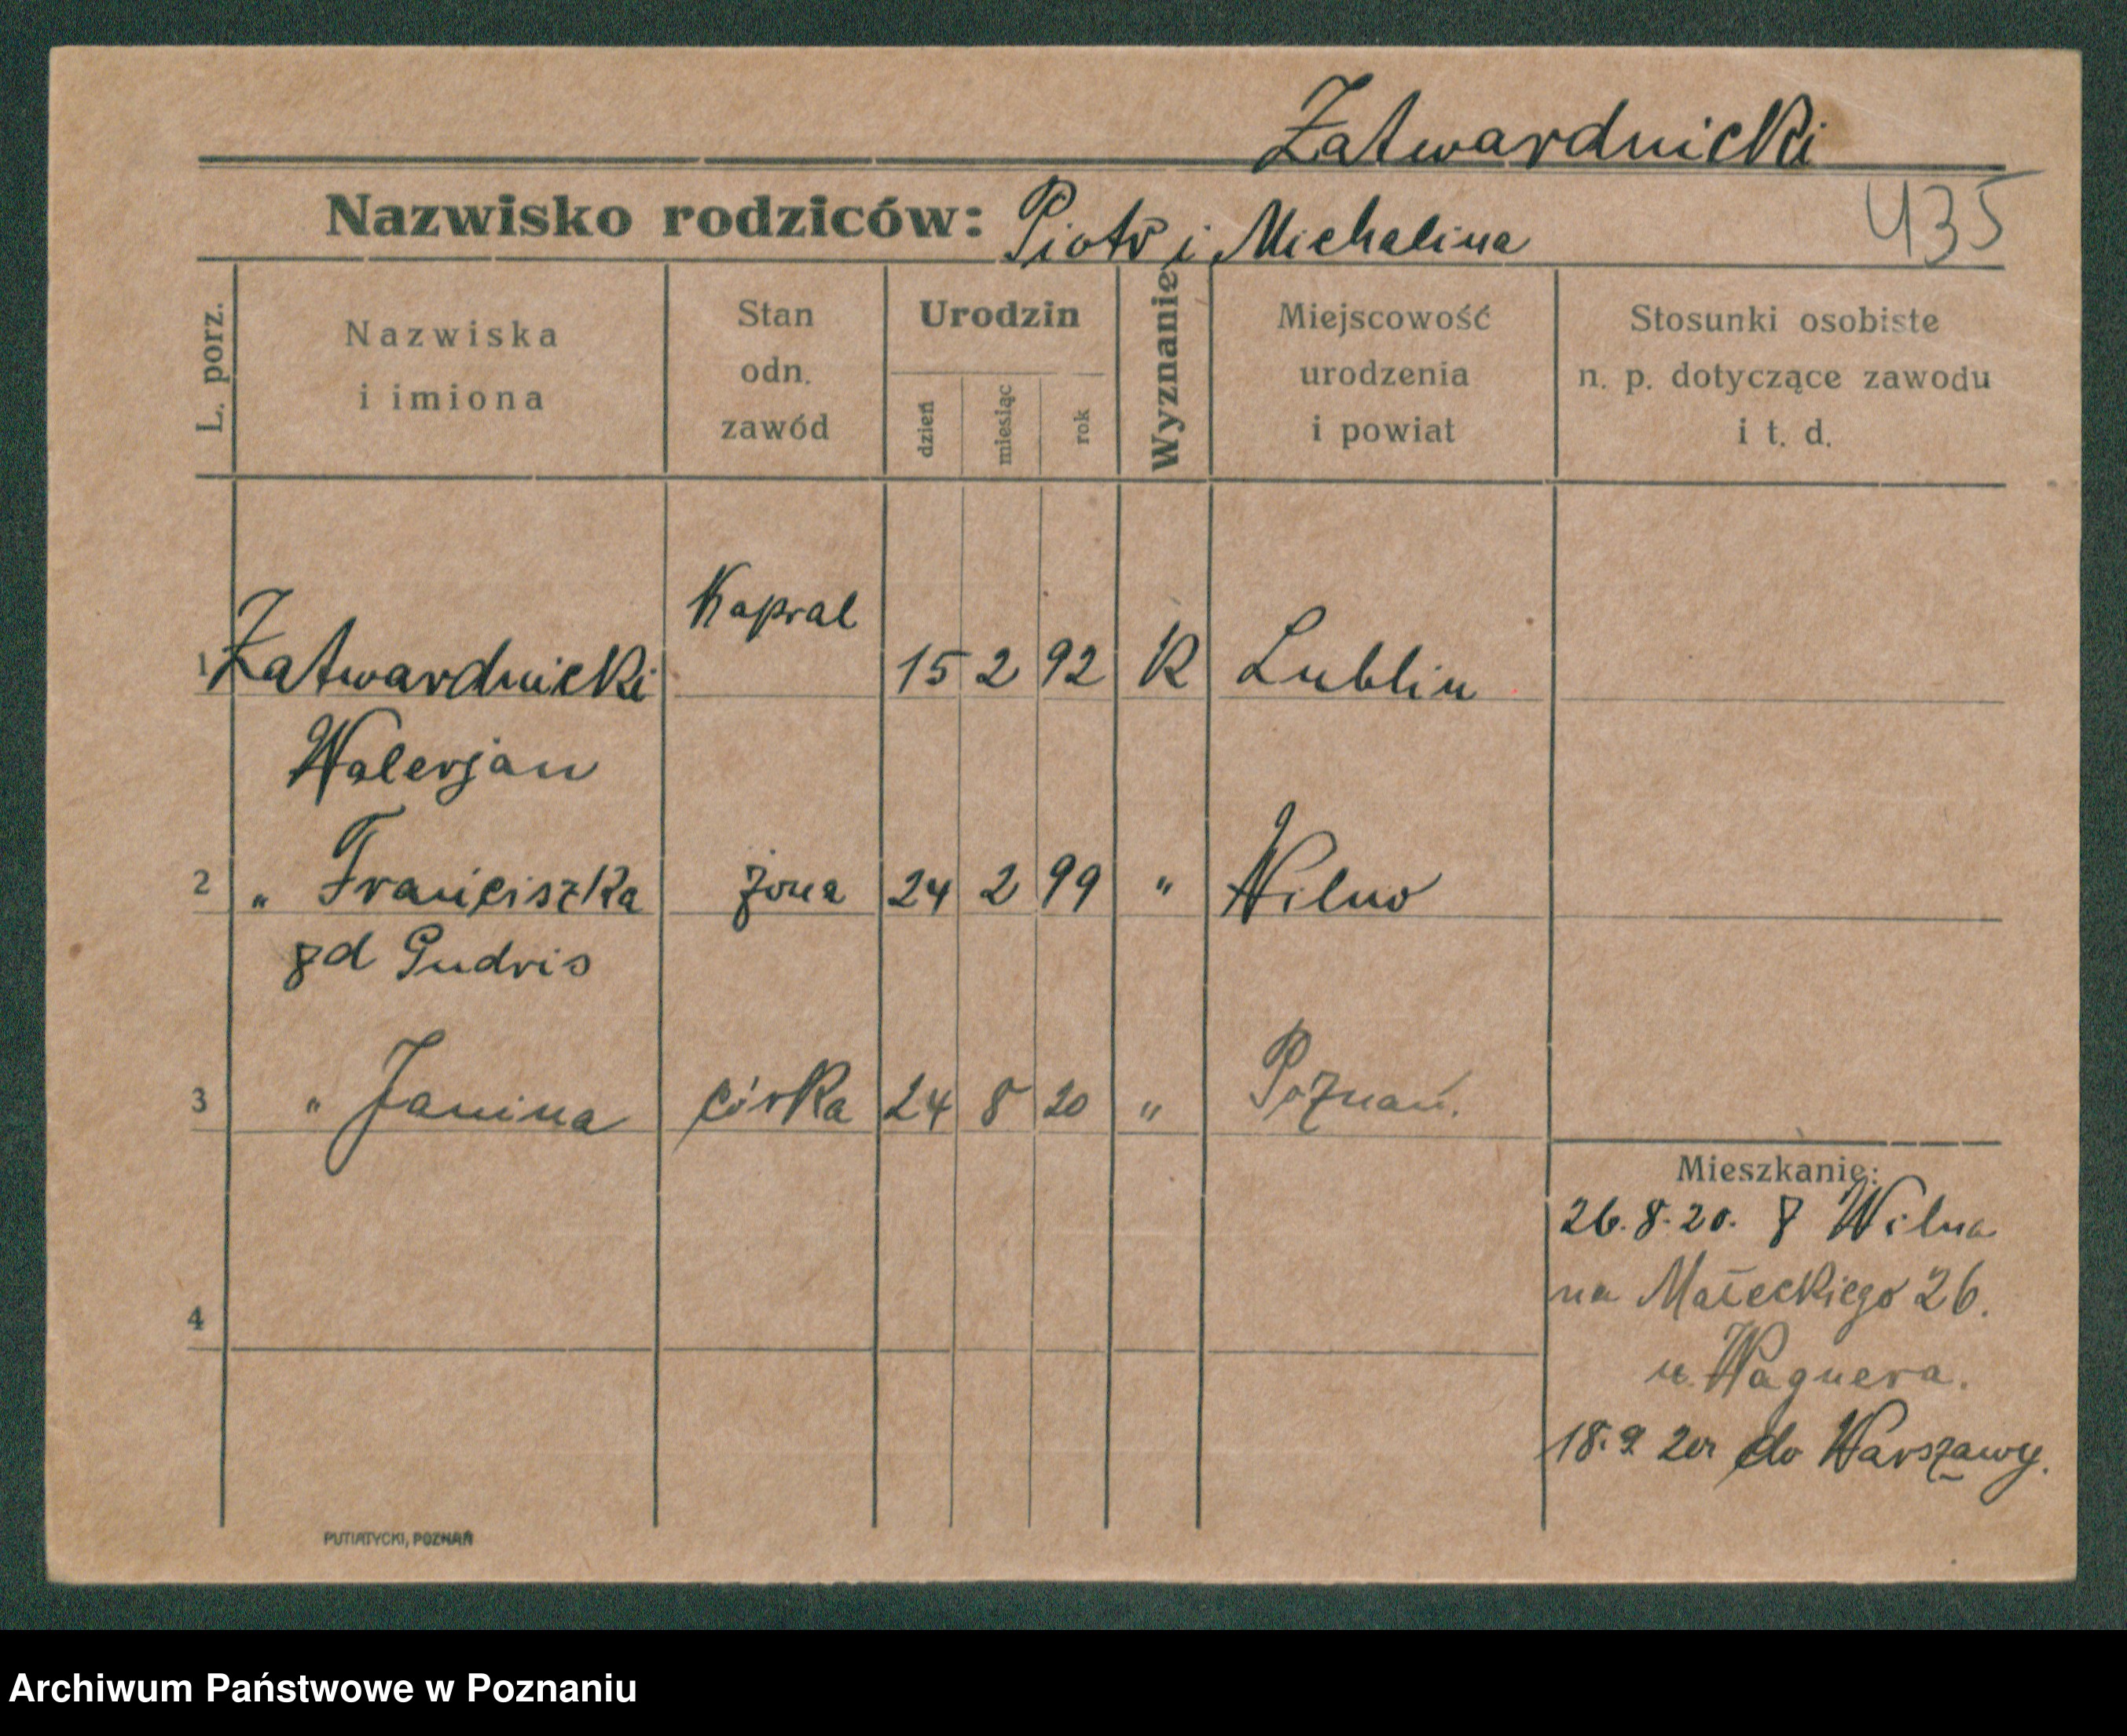 Zatwardnicki
Nazwisko rodziców: Piotr i Michalina
435
L. porz.
Nazwiska
i imiona
Stan
odn.
zawód
Urodzin
dzień
miesiąc
rok
Wyznanie
Miejscowość
urodzenia
i powiat
Stosunki osobiste
n. p. dotyczące zawodu
i t. d.
Kapral
1 Zatwardnicki 15 2 92 K Lublin
Walerjan
2 " Franciszka żona 24 2 99 " Wilno
zd Gudris
3 " Janina córka 24 8 20 " Poznań.
Mieszkanie:
26.8.20. z Wilna
na Małeckiego 26.
u. Wagnera.
4
18.9 20r do Warszawy.
PUTIATYCKI, POZNAŃ
Archiwum Państwowe w Poznaniu